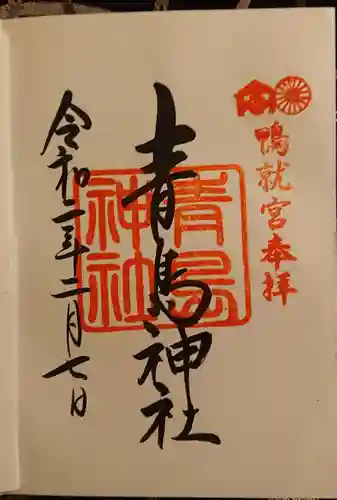 鴨就宮奉拝
青島神社
青島神社
令和二年二月七日